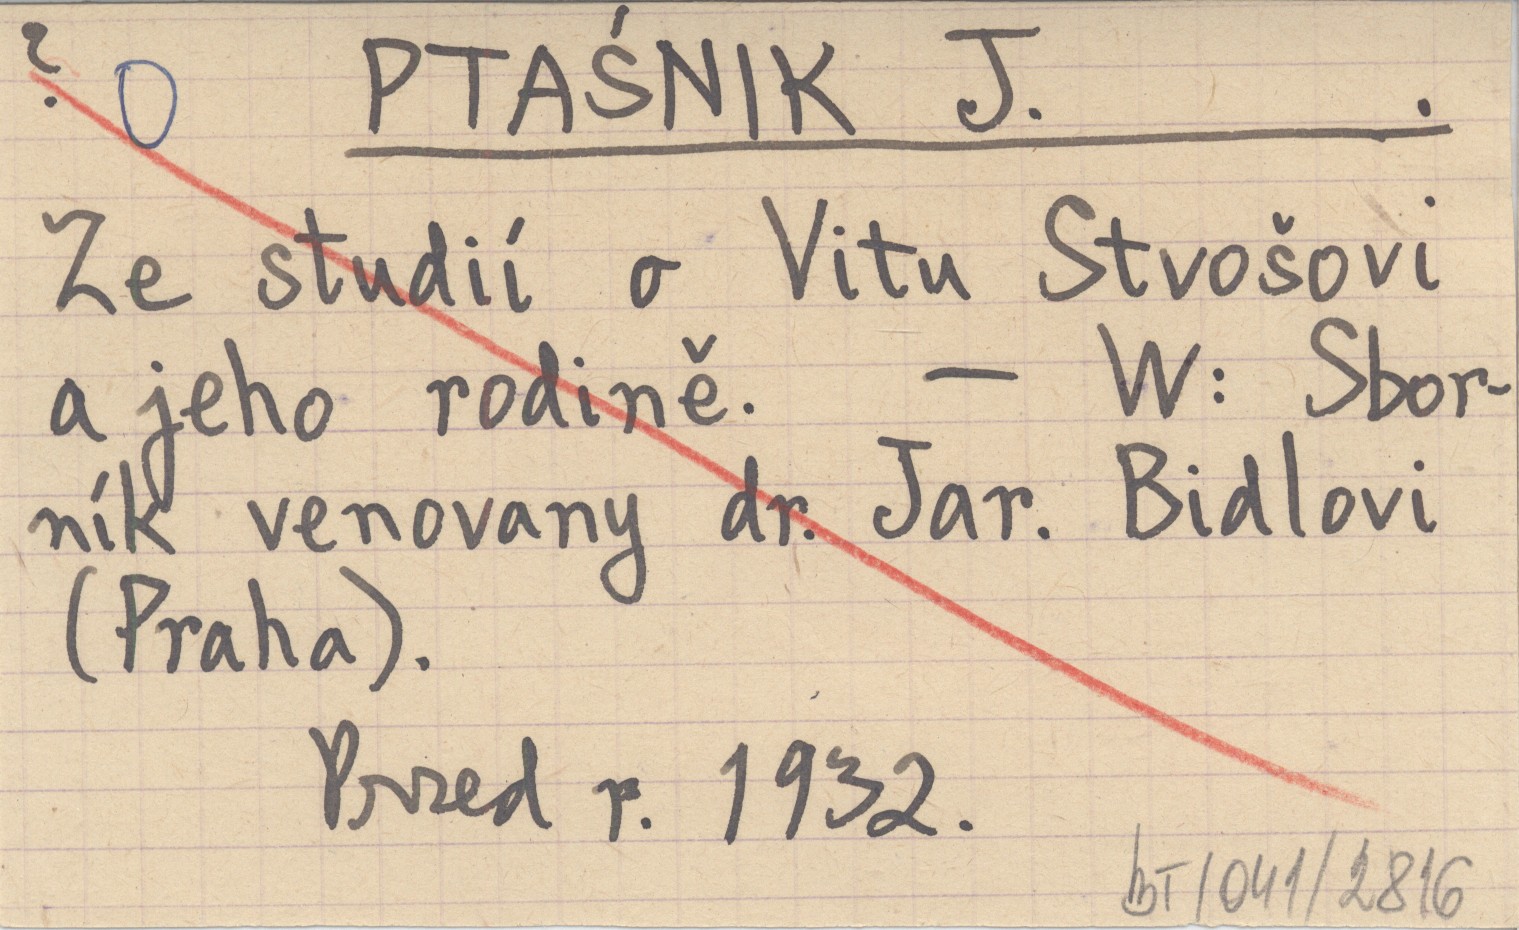 ? 0 PTAŚNIK J. .
Ze studií o Vitu Stvošovi
a jeho rodině. — W: Sbor-
ník venovany dr. Jar. Bidlovi
(Praha).
Przed r. 1932.
BT/041/2816